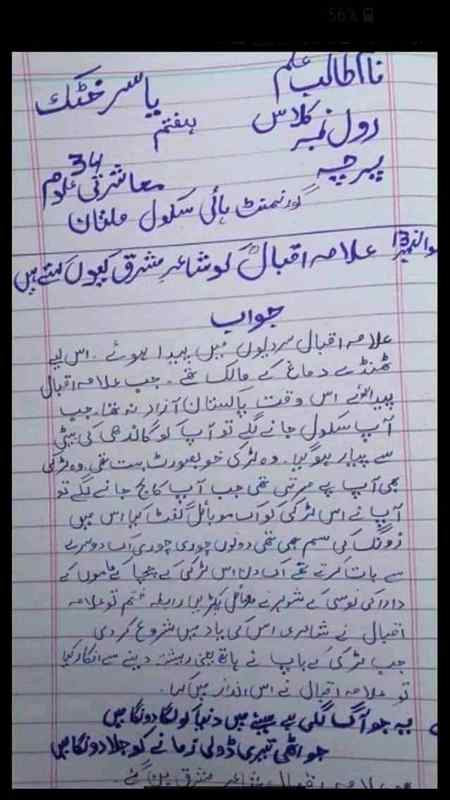 56%
نام طالب علم یاسر خٹک
کلاس ہفتم
رول نمبر 34
پرچہ معاشرتی علوم
گورنمنٹ ہائی سکول ملتان
سوال نمبر 13 علامہ اقبالؒ کو شاعرِ مشرق کیوں کہتے ہیں
جواب
علامہ اقبال سردیوں میں پیدا ہوئے ۔ اس لیے
ٹھنڈے دماغ کے مالک تھے ۔ جب علامہ اقبال
پیدا ہوئے اس وقت پاکستان آزاد نہ تھا، جب
آپ سکول جانے لگے تو آپ کو گاندھی کی بیٹی
سے پیار ہو گیا ۔ وہ لڑکی خوبصورت بہت تھی وہ لڑکی
بھی آپ پے مرتی تھی جب آپ کالج جانے لگے تو
آپ نے اس لڑکی کو اک موبائل گفٹ کیا اس میں
زونگ کی سم بھی تھی دونوں چوری چوری اک دوسرے
سے بات کرتے تھے اک دن اس لڑکی کے چچا کے ماموں کے
دادا کی نوسی کے شوہر نے موبائل پکڑ لیا رابطہ ختم تو علامہ
اقبال نے شاعری اس کی یاد میں شروع کر دی
جب لڑکی کے باپ نے ہاتھ یعنی رشتہ دینے سے انکار کیا
تو علامہ اقبال نے اس انداز میں کہا
یہ جو آگ لگی ہے سینے میں دنیا کو لگا دونگا میں
جو اٹھی تیری ڈولی زمانے کو جلا دونگا میں
علامہ اقبال شاعر مشرق بن گئے